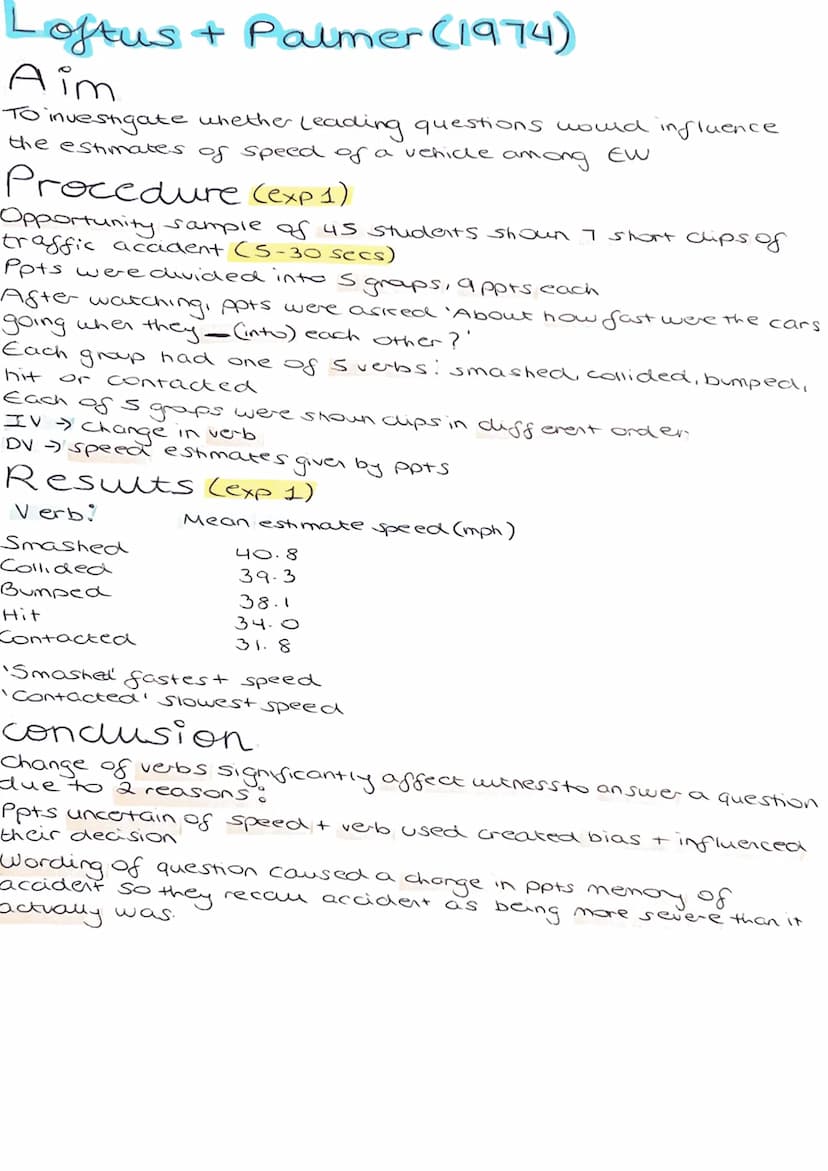 Loftus + Palmer (1974)
Aim
To investigate whether leading questions would influence
the estimates of speed of a vehicle among EW
Procedure (exp 1)
Opportunity sample of 45 students shown 7 short clips of
traffic accident (5-30 secs)
Ppts were divided into 5 groups, 9 ppts each
After watching, ppts were asked 'About how fast were the cars
going when they — (into) each other?'
Each group had one of 5 verbs: smashed, collided, bumped,
hit or contacted
Each of 5 groups were shown clips in different order
IV → change in verb
DV → speed estimates given by ppts
Results (exp 1)
Verb: Mean estimate speed (mph)
Smashed 40.8
Collided 39.3
Bumped 38.1
Hit 34.0
Contacted 31.8
'Smashed' fastest speed
'Contacted' slowest speed
Conclusion
Change of verbs significantly affect witness to answer a question
due to 2 reasons:
Ppts uncertain of speed + verb used created bias + influenced
their decision
Wording of question caused a change in ppts memory of
accident so they recall accident as being more severe than it
actually was.